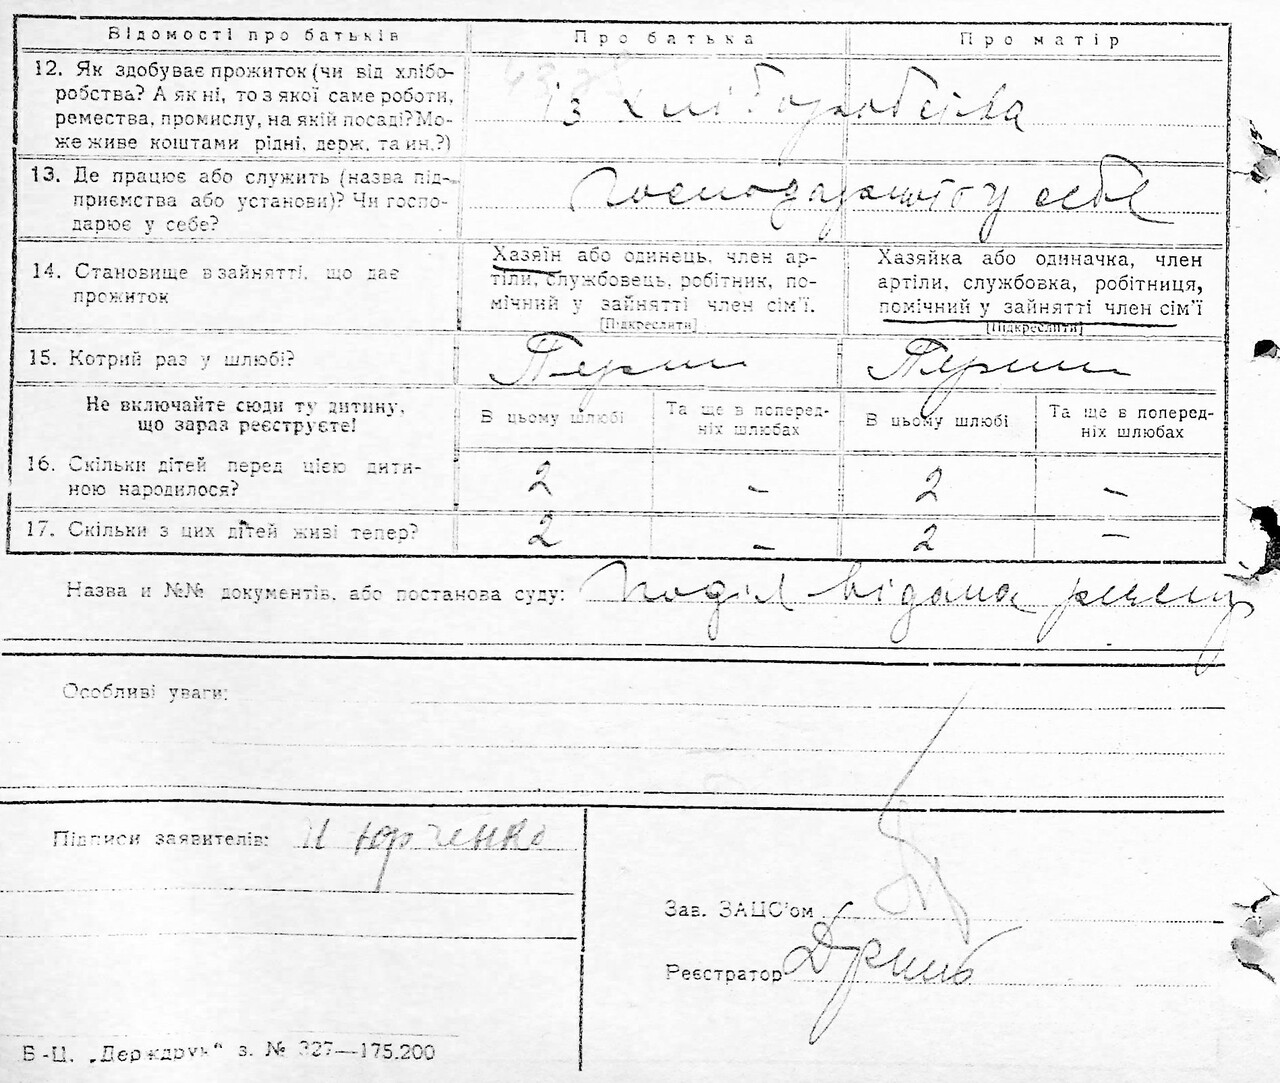 Відомості про батьків Про батька Про матір
12. Як здобуває прожиток (чи від хлібо-
робства? А як ні, то з якої саме роботи,
ремества, промислу, на якій посаді? Мо-
же живе коштами рідні, держ. та ин.?)
із хліборобства
13. Де працює або служить (назва під-
приємства або установи)? Чи госпо-
дарює у себе?
господарюють у себе
14. Становище в зайнятті, що дає
прожиток
Хазяїн або одинець, член ар-
тіли, службовець, робітник, по-
мічний у зайнятті член сім'ї.
[Підкреслити]
Хазяйка або одиначка, член
артіли, службовка, робітниця,
помічний у зайнятті член сім'ї
[Підкреслити]
15. Котрий раз у шлюбі? Перши Перши
Не включайте сюди ту дитину,
що зараз реєструєте!
В цьому шлюбі
Та ще в поперед-
ніх шлюбах
В цьому шлюбі
Та ще в поперед-
ніх шлюбах
16. Скільки дітей перед цією дити-
ною народилося?
2 - 2 -
17. Скільки з цих дітей живі тепер? 2 - 2 -
Назва и №№ документів, або постанова суду: видана
Особливі уваги:
Підписи заявителів: И Юрченко
Зав. ЗАЦС'ом
Реєстратор
Б-Ц. „Держдрук" з. № 327—175.200